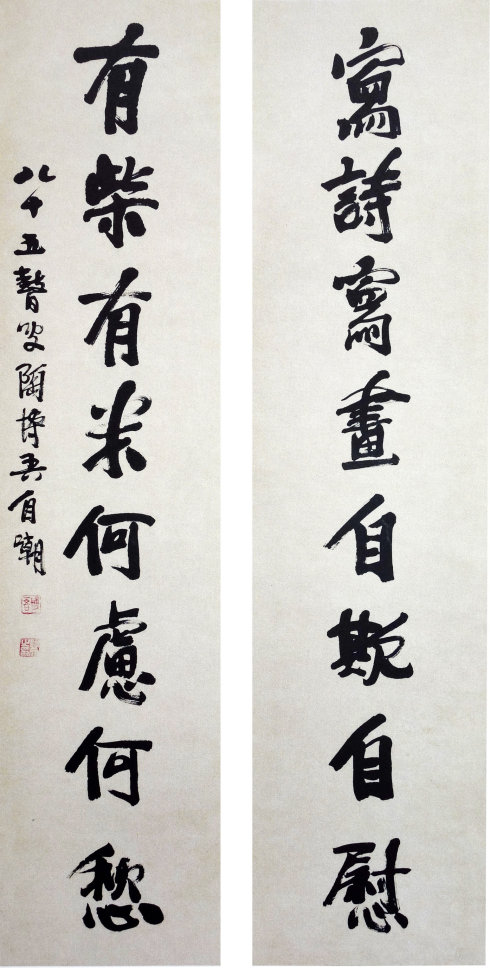 寫詩寫畫自欺自慰
有柴有米何慮何愁
八十五瞽叟陶博吾自嘲